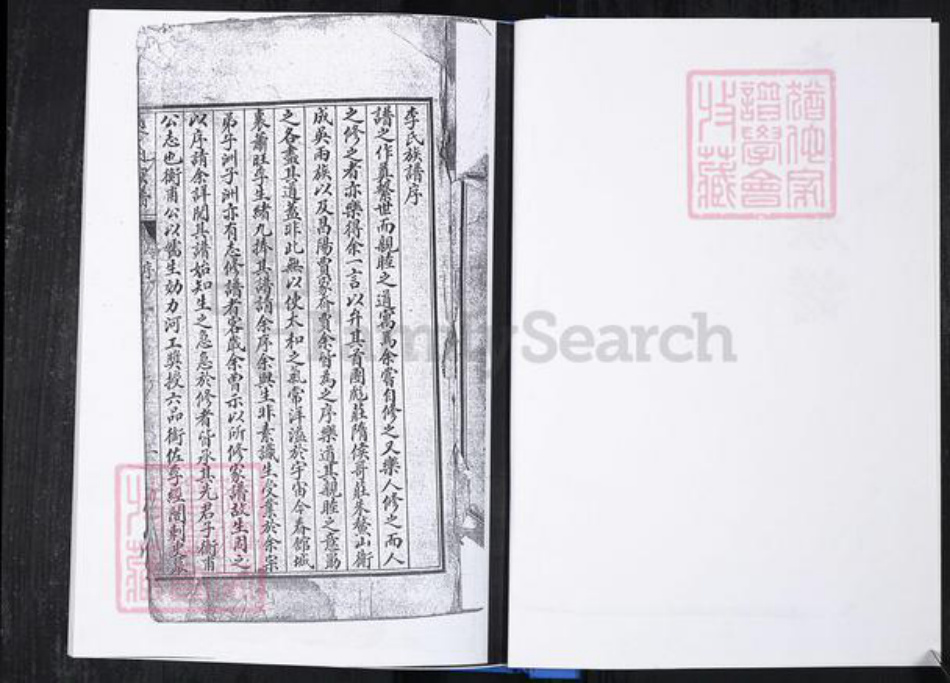 李氏族譜序
譜之作真繫世而親睦之道寓焉余嘗自修之又樂人修之而人
之修之者亦樂得余一言以弁其首團彪莊隋侯哥莊朱鰲山衛
成吳兩族以及昌陽賈家夼賈余皆為之序樂道其親睦之意勗
之各盡其道蓋非此無以使太和之氣常洋溢於宇宙今春館城
裏蕭旺李生緒九捧其譜請余序余與生非素識生受業於余宗
弟子洲子洲亦有志修譜者客歲余曾示以所修家譜故生因之
以序請余詳閱其譜始知生之急急於修者皆承其先君子衛甫
公志也衛甫公以武生効力河工獎授六品銜佐李經閣刺史
序
猶他家譜學會收藏
FamilySearch